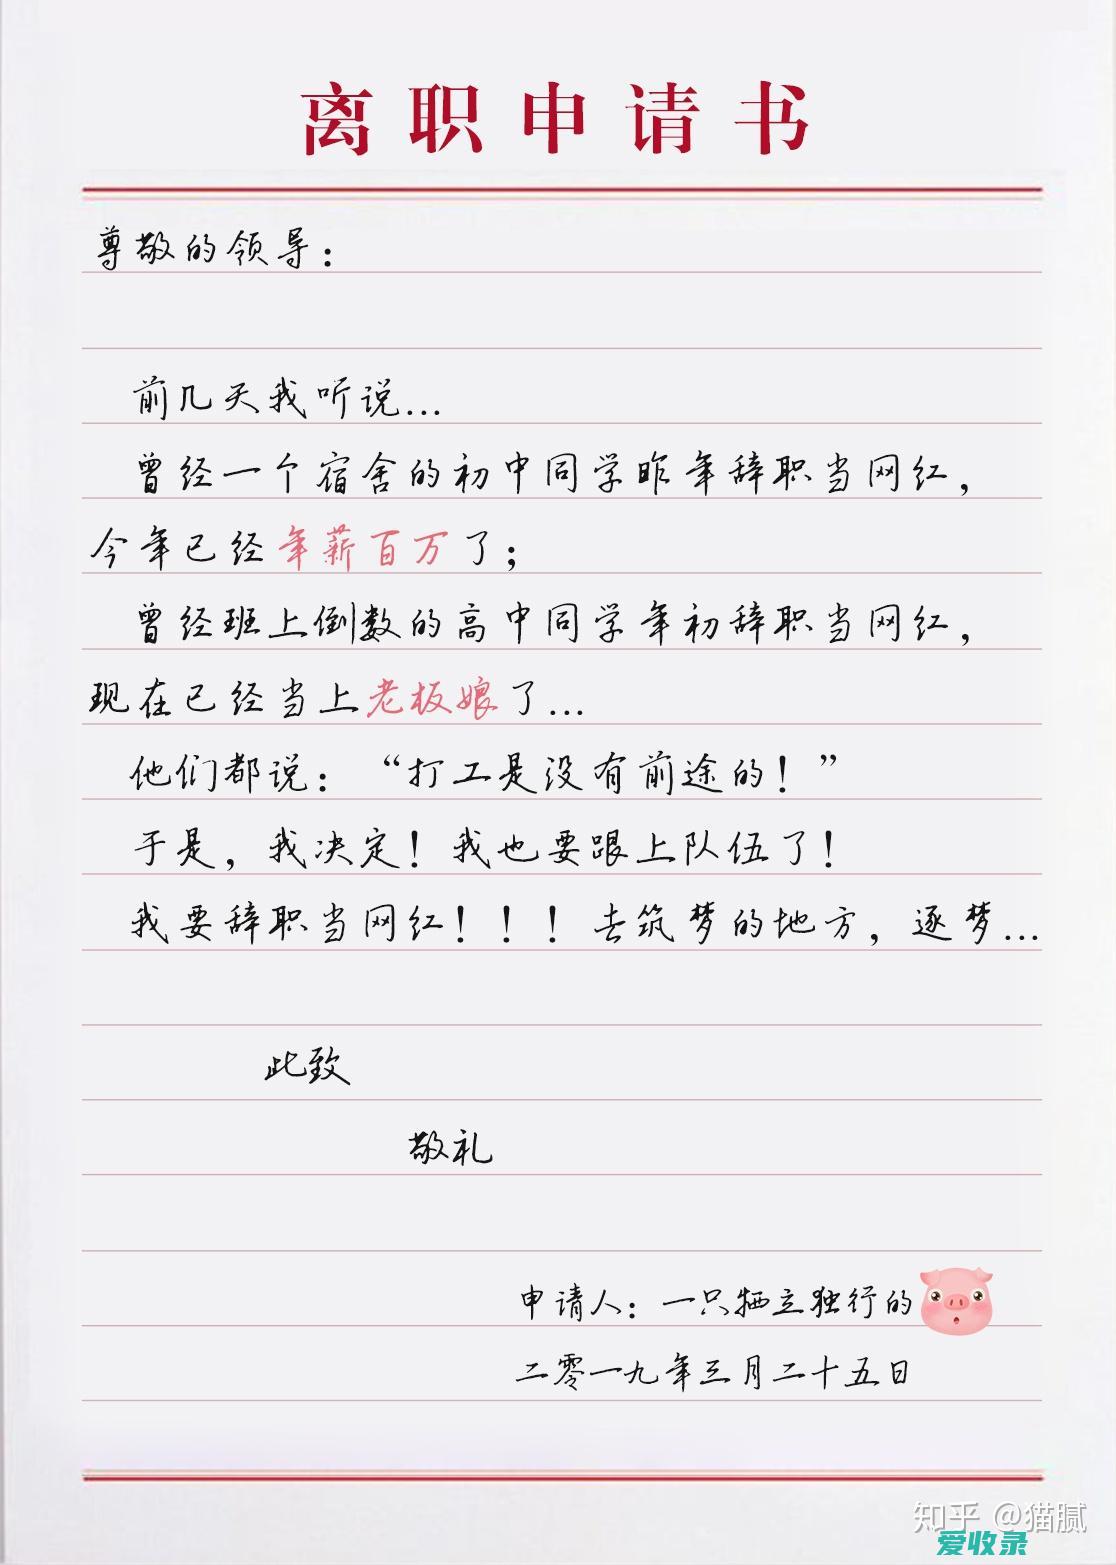 离职申请书
尊敬的领导：
前几天我听说...
曾经一个宿舍的初中同学昨年辞职当网红，
今年已经年薪百万了；
曾经班上倒数的高中同学年初辞职当网红，
现在已经当上老板娘了...
他们都说：“打工是没有前途的！”
于是，我决定！我也要跟上队伍了！
我要辞职当网红！！！去筑梦的地方，逐梦...
此致
敬礼
申请人：一只牺立独行的
二零一九年三月二十五日
知乎 @猫腻
爱收录